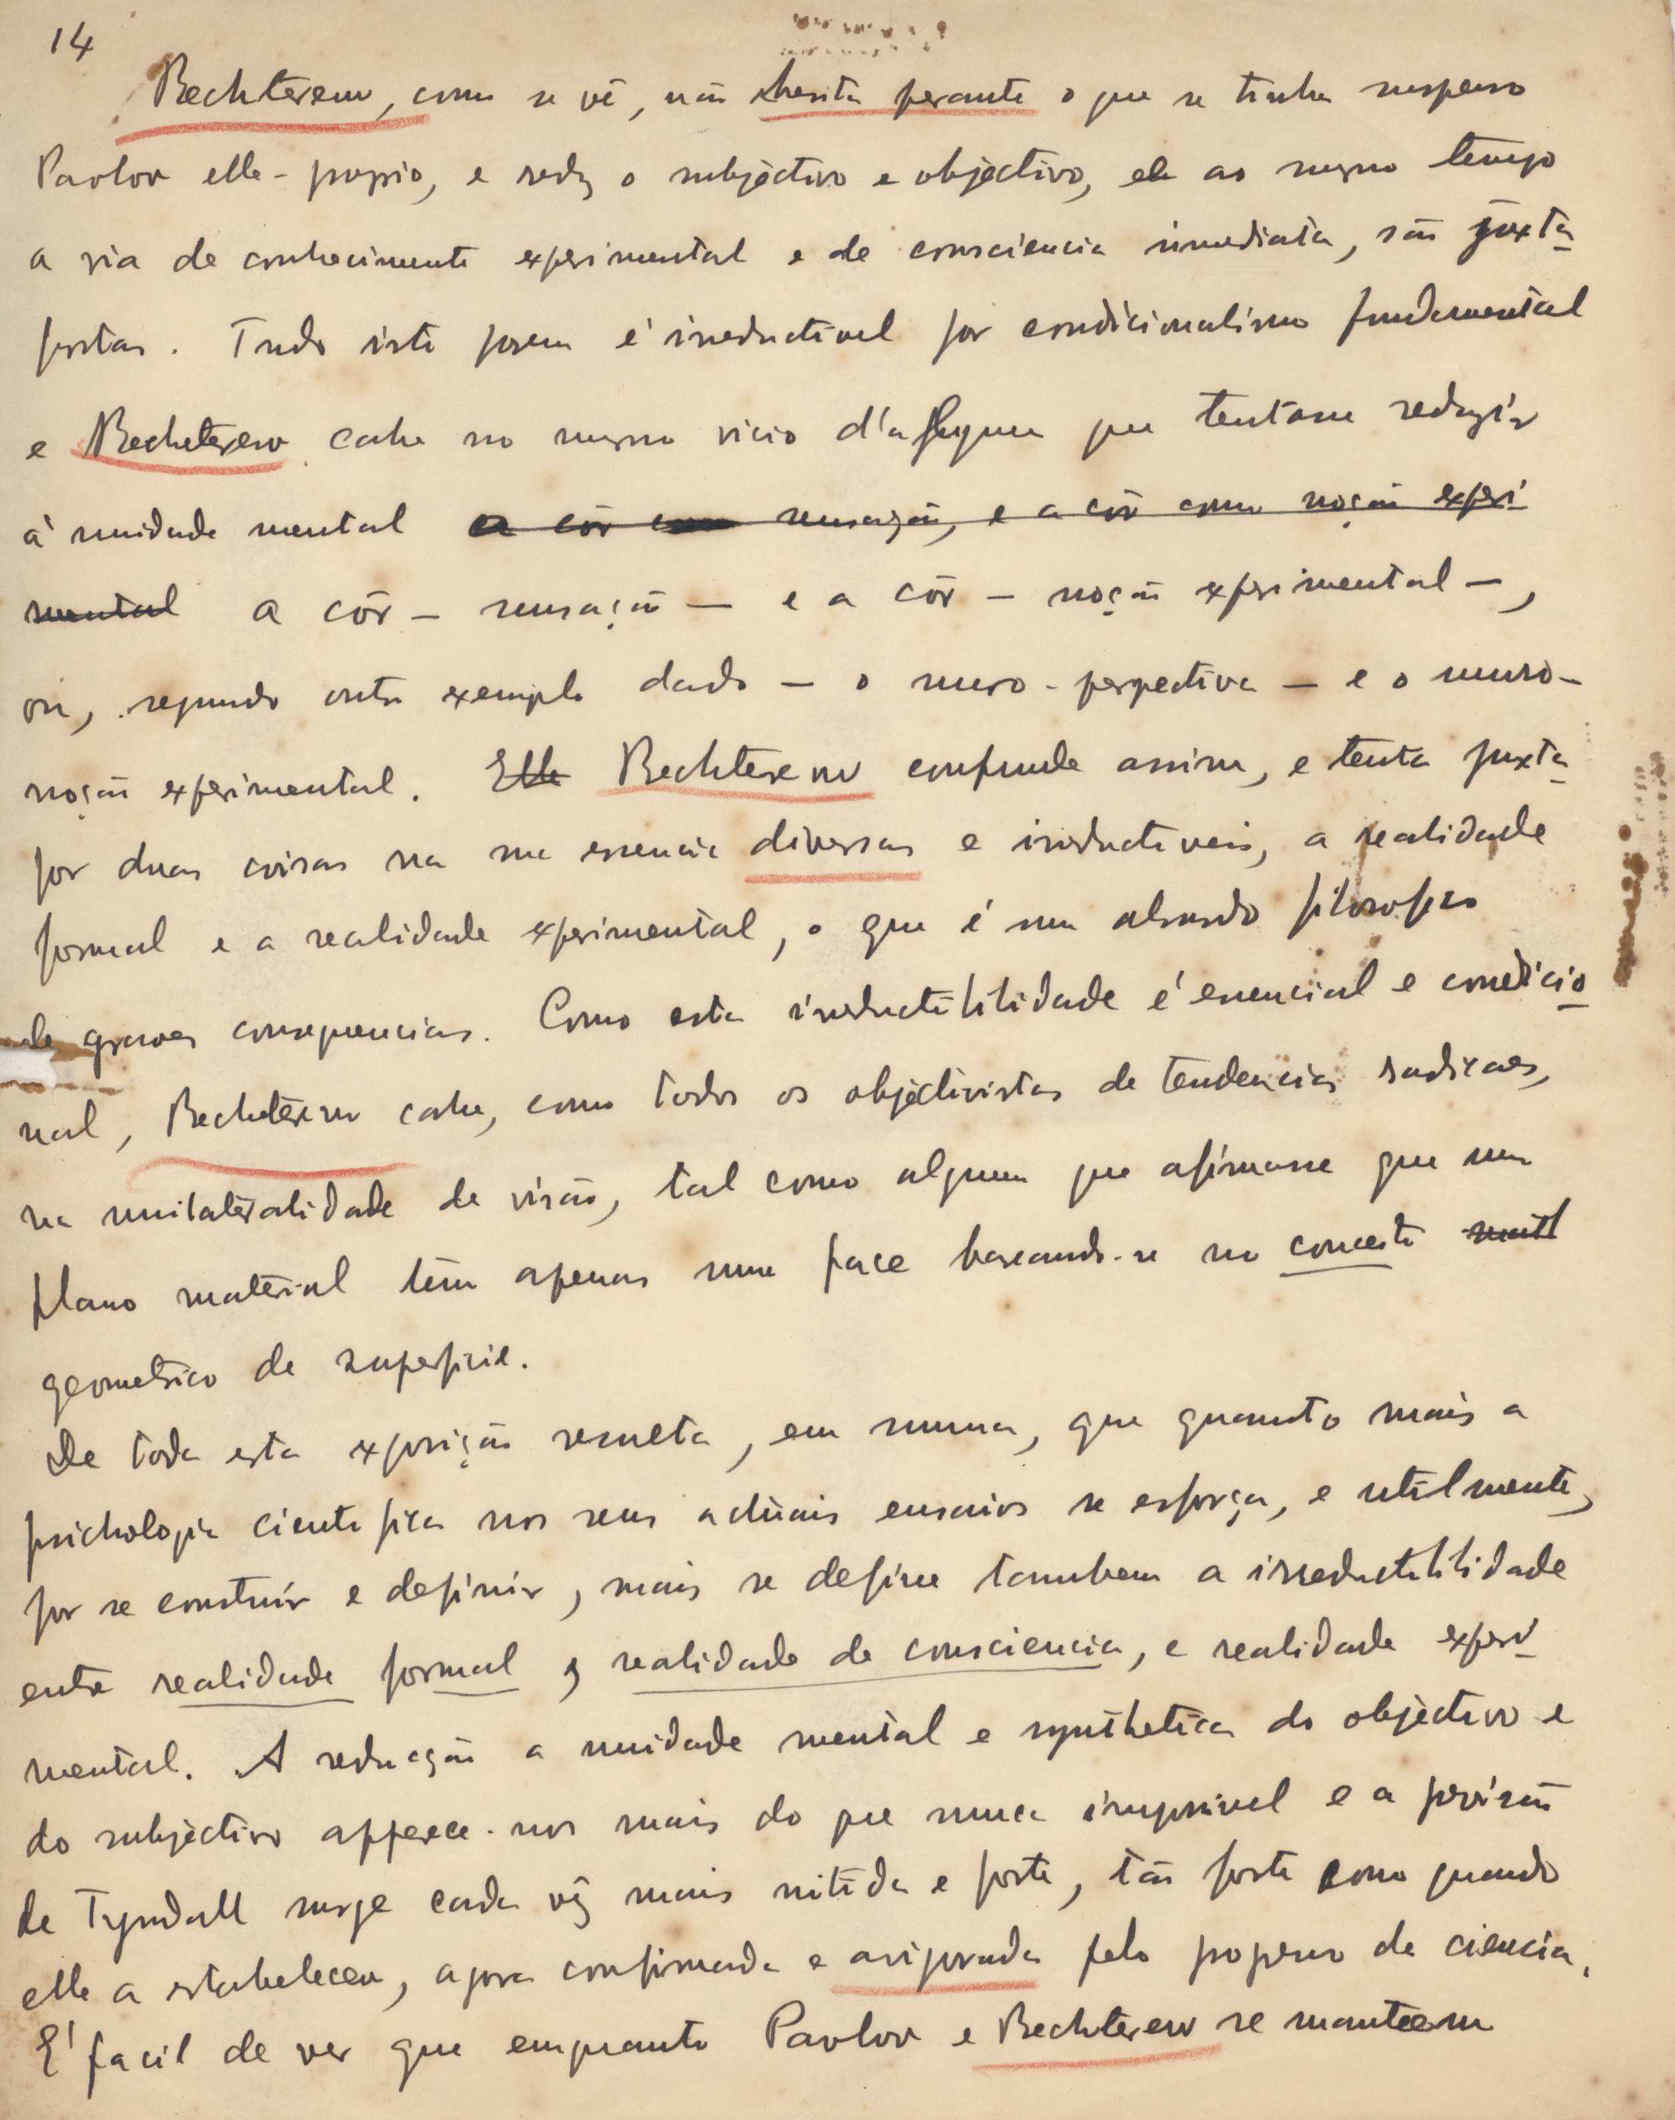 14
Bechterew, como se vê, não hesita perante o que se tinha suspenso
Pavlov elle-proprio, e reduz o subjectivo e objectivo, ele ao mesmo tempo
a via de conhecimento experimental e de consciencia immediata, são juxta-
postas. Tudo isto porem é irreductivel por condicionalismo fundamental
e Bechterew cahe no mesmo vicio d'alguem que tentasse reduzir
á unidade mental a côr como sensação, e a côr como noção experi
mental a côr - sensação - e a côr - noção experimental -,
ou, segundo outro exemplo dado - o muro - perspectiva - e o muro -
noção experimental. Elle Bechterew confunde assim, e tenta juxta-
por duas coisas na sua essencia diversas e irreductiveis, a realidade
formal e a realidade experimental, o que é um absurdo filosofico
de graves consequencias. Como esta irreductibilidade é essencial e condicio-
nal, Bechterew cahe, como todos os objectivistas de tendencias radicaes,
na unilateralidade de visão, tal como alguem que afirmasse que um
plano material têm apenas uma face baseando-se no conceito
geometrico de superficie.
De toda esta exposição resulta, em summa, que quanto mais a
psichologia cientifica nos seus actuais ensaios se esforça, e utilmente,
por se construir e definir, mais se define tambem a irreductibilidade
entre realidade formal, realidade de consciencia, e realidade experi-
mental. A reducção a unidade mental e synthetica do objectivo e
do subjectivo apparece-nos mais do que nunca impossivel e a previsão
de Tyndall surge cada vêz mais nitida e forte, tão forte como quando
elle a estabeleceu, agora confirmada e avigorada pelo progresso da ciencia.
É facil de ver que emquanto Pavlov e Bechterew se manteem